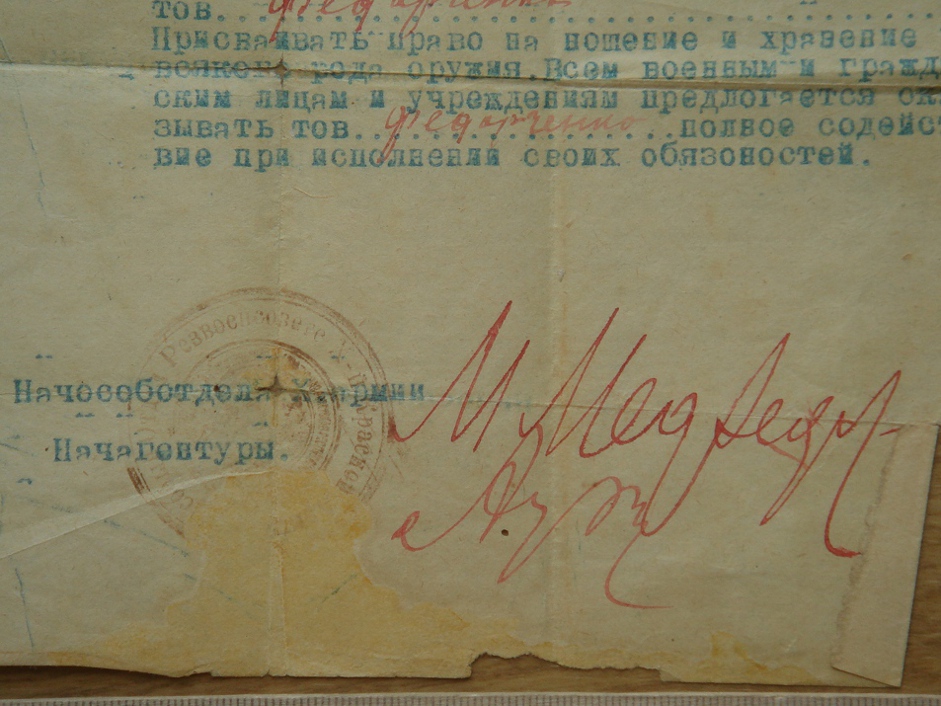 тов. Федорченко
Присваивать право на ношение и хранение
всякого рода оружия.Всем военным и гражд
ским лицам и учреждениям предлогается ок
зывать тов. Федорченко полное содейс
вие при исполнении своих обязоностей.
Реввоенсовете
Начособотдела Х армии
Начагентуры.